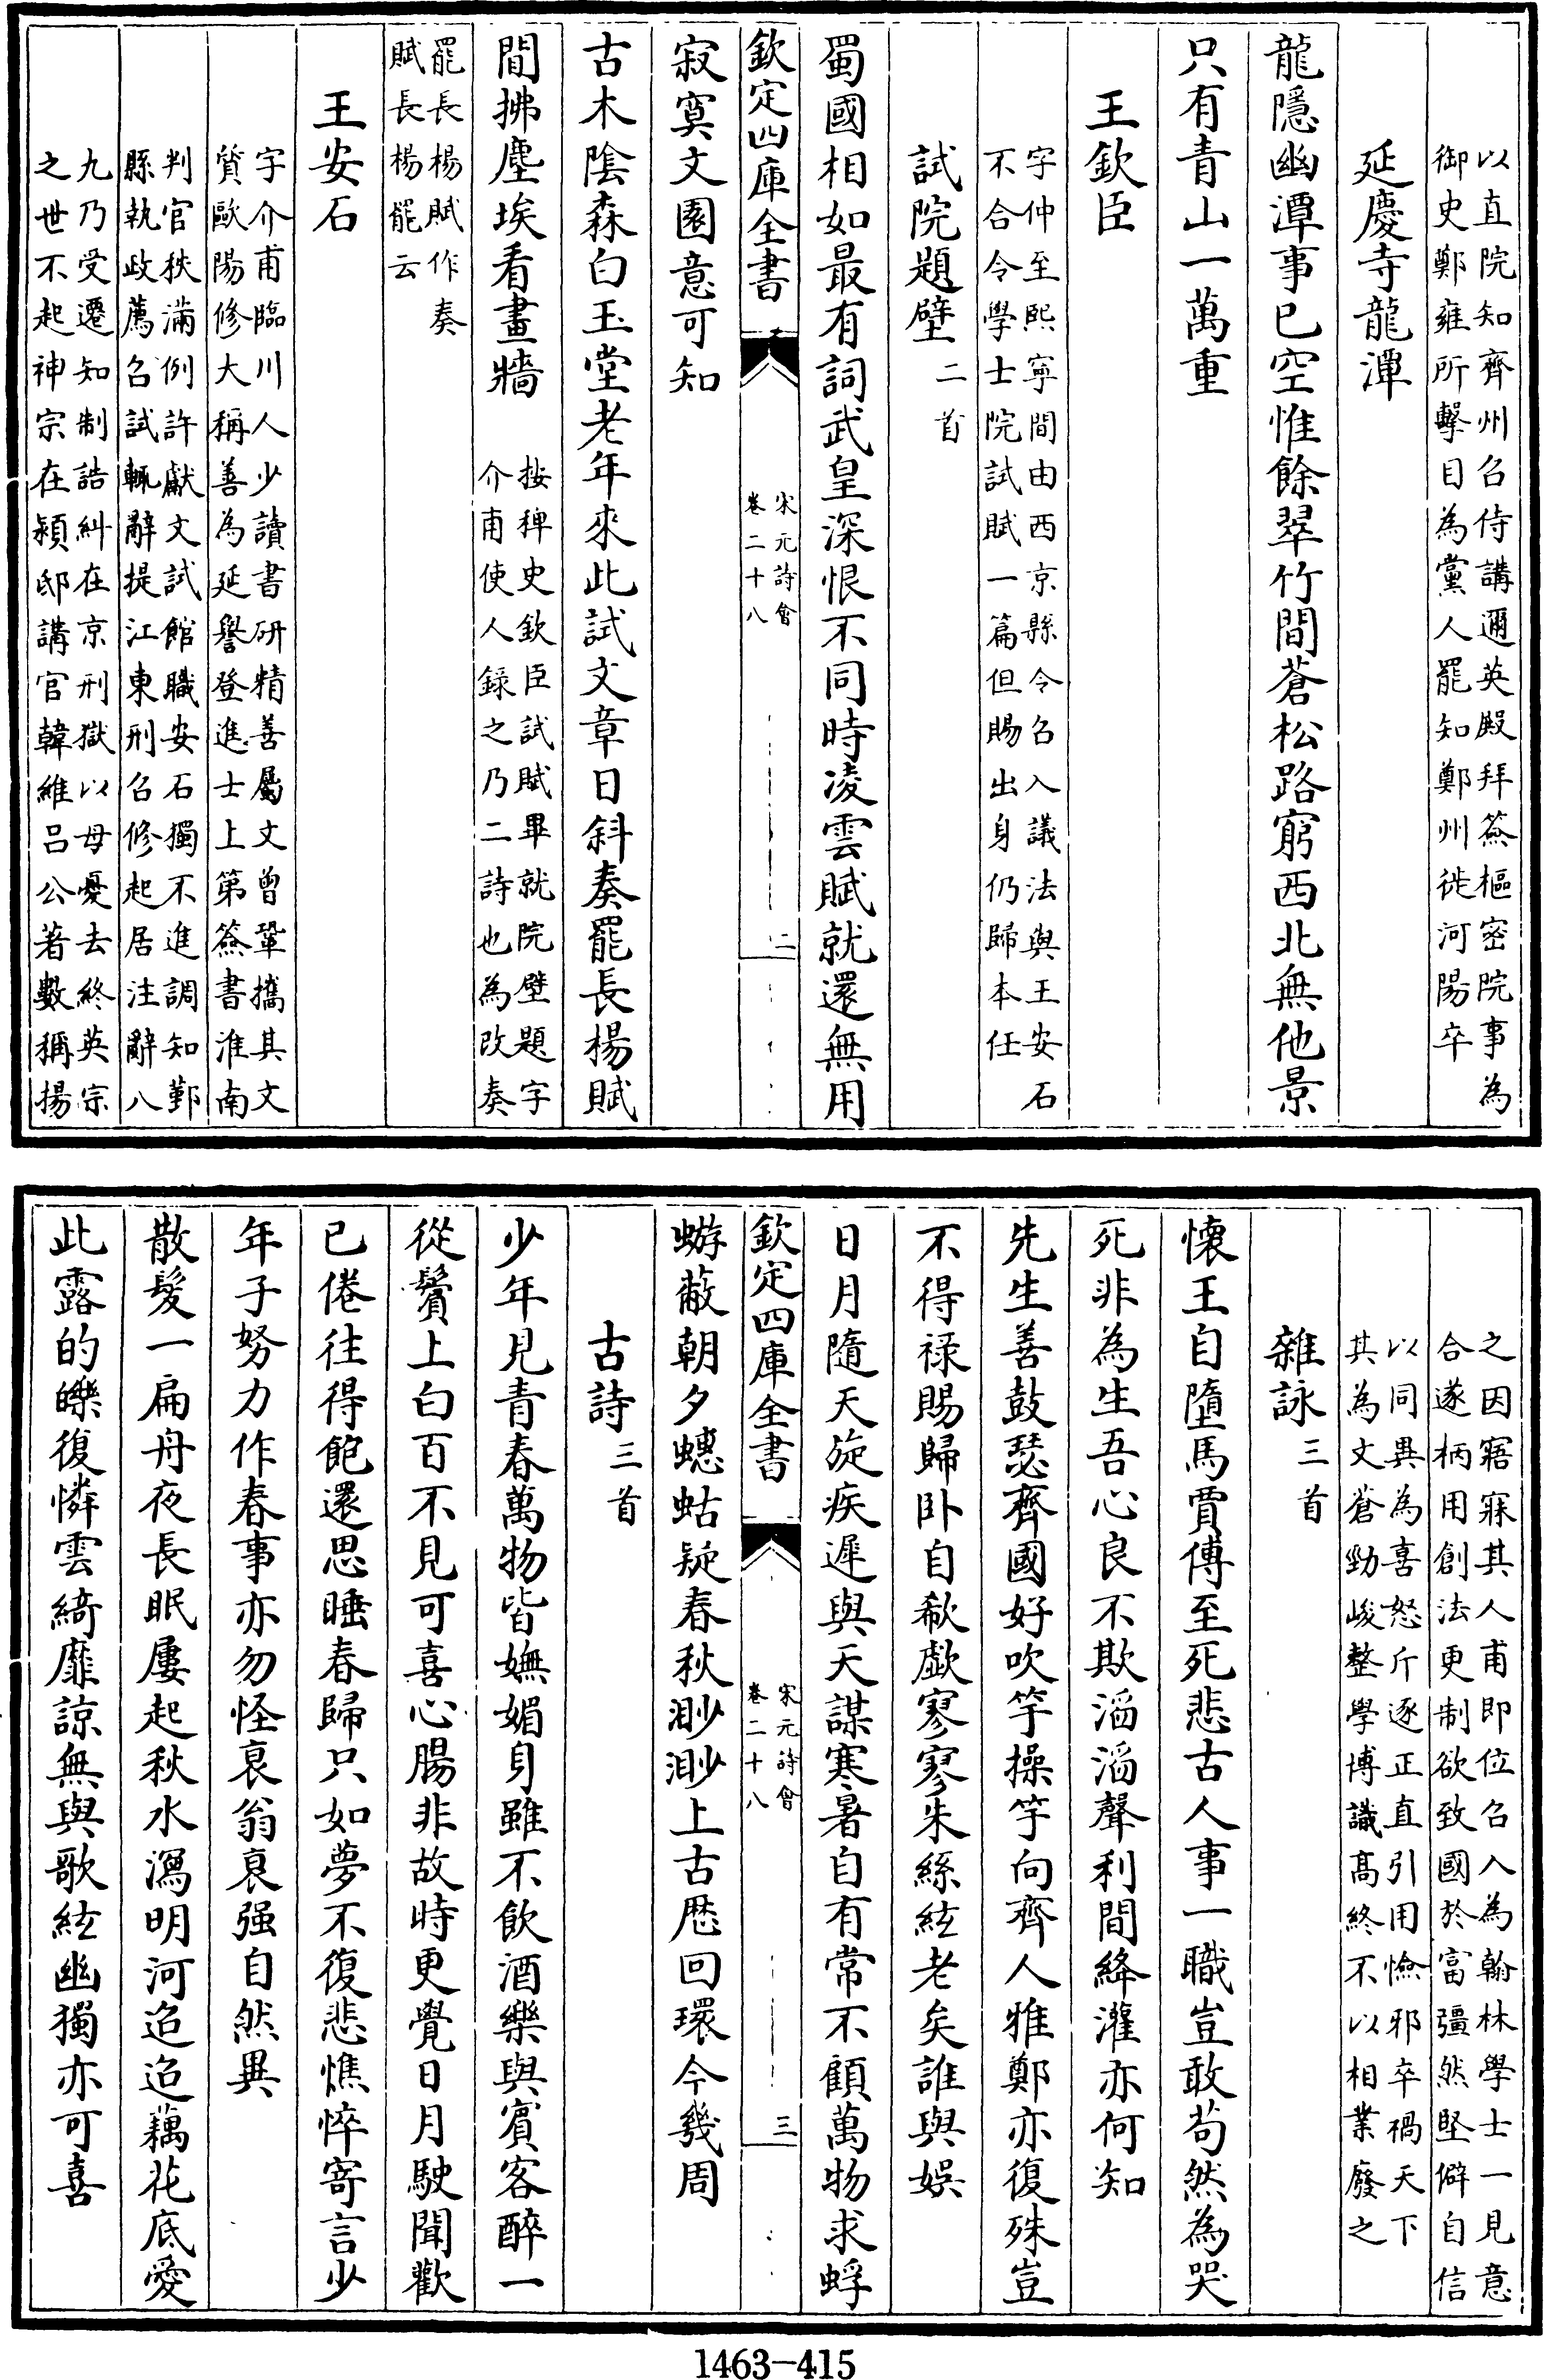 以直院知齊州召侍講邇英殿拜簽樞密院事為
御史鄭雍所擊目為黨人罷知鄭州徙河陽卒
延慶寺龍潭
龍隱幽潭事已空惟餘翠竹間蒼松路窮西北無他景
只有青山一萬重
王欽臣
字仲至熙寧間由西京縣令召入議法與王安石
不合令學士院試賦一篇但賜出身仍歸本任
試院題壁二首
蜀國相如最有詞武皇深恨不同時凌雲賦就還無用
欽定四庫全書
宋元詩會
卷二十八
二
寂寞文園意可知
古木陰森白玉堂老年來此試文章日斜奏罷長楊賦
間拂塵埃看畫牆
按稗史欽臣試賦畢就院壁題字
介甫使人錄之乃二詩也為改奏
罷長楊賦作奏
賦長楊罷云
王安石
字介甫臨川人少讀書研精善屬文曾鞏攜其文
質歐陽修大稱善為延譽登進士上第簽書淮南
判官秩滿例許獻文試館職安石獨不進調知鄞
縣執政薦召試輒辭提江東刑召修起居注辭八
九乃受遷知制誥糾在京刑獄以母憂去終英宗
之世不起神宗在潁邸講官韓維呂公著數稱揚
之因寤寐其人甫即位召入為翰林學士一見意
合遂柄用創法更制欲致國於富彊然堅僻自信
以同異為喜怒斥逐正直引用憸邪卒禍天下
其為文蒼勁峻整學博識高終不以相業廢之
雜詠三首
懷王自墮馬賈傅至死悲古人事一職豈敢苟然為哭
死非為生吾心良不欺滔滔聲利間絳灌亦何知
先生善鼓瑟齊國好吹竽操竽向齊人雅鄭亦復殊豈
不得祿賜歸臥自欷歔寥寥朱絲絃老矣誰與娛
日月隨天旋疾遲與天謀寒暑自有常不顧萬物求蜉
欽定四庫全書
宋元詩會
卷二十八
三
蝣蔽朝夕蟪蛄疑春秋渺渺上古歷回環今幾周
古詩三首
少年見青春萬物皆嫵媚身雖不飲酒樂與賓客醉一
從鬢上白百不見可喜心腸非故時更覺日月駛聞歡
已倦往得飽還思睡春歸只如夢不復悲憔悴寄言少
年子努力作春事亦勿怪衰翁衰强自然異
散髮一扁舟夜長眠屢起秋水瀉明河迢迢藕花底愛
此露的皪復憐雲綺靡諒無與歌絃幽獨亦可喜
1463-415